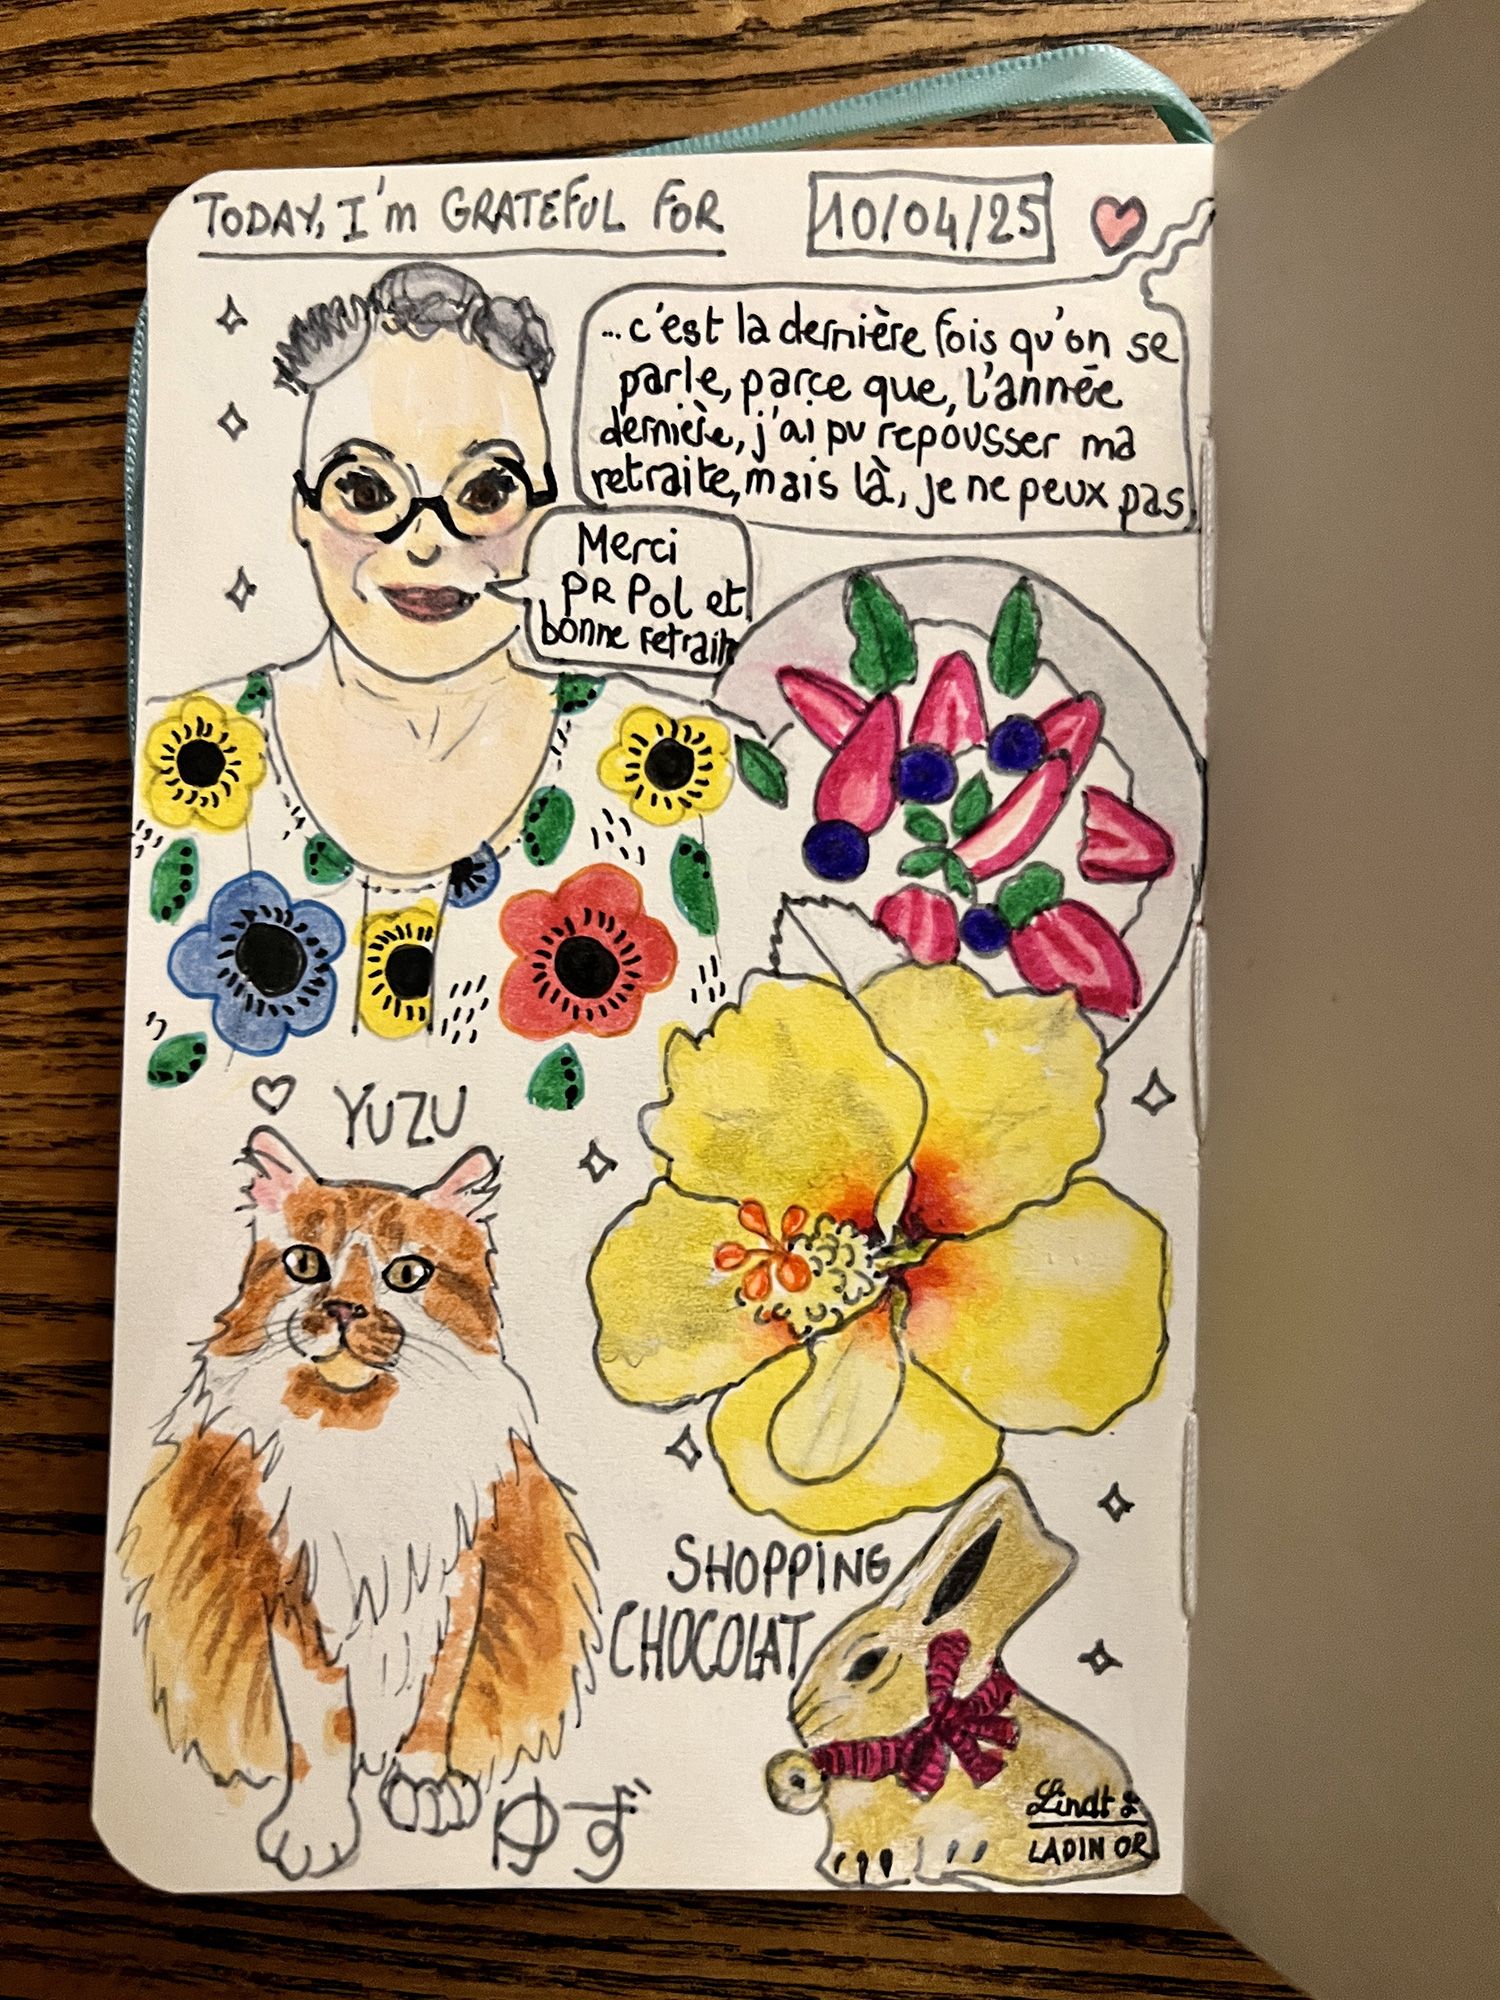 TODAY, I'm GRATEFUL FOR
10/04/25
...c'est la dernière fois qu'on se
parle, parce que, l'année
dernière, j'ai pu repousser ma
retraite, mais là, je ne peux pas.
Merci
PR Pol et
bonne retraite
YUZU
SHOPPING
CHOCOLAT
ゆず
Lindt
LAPIN OR